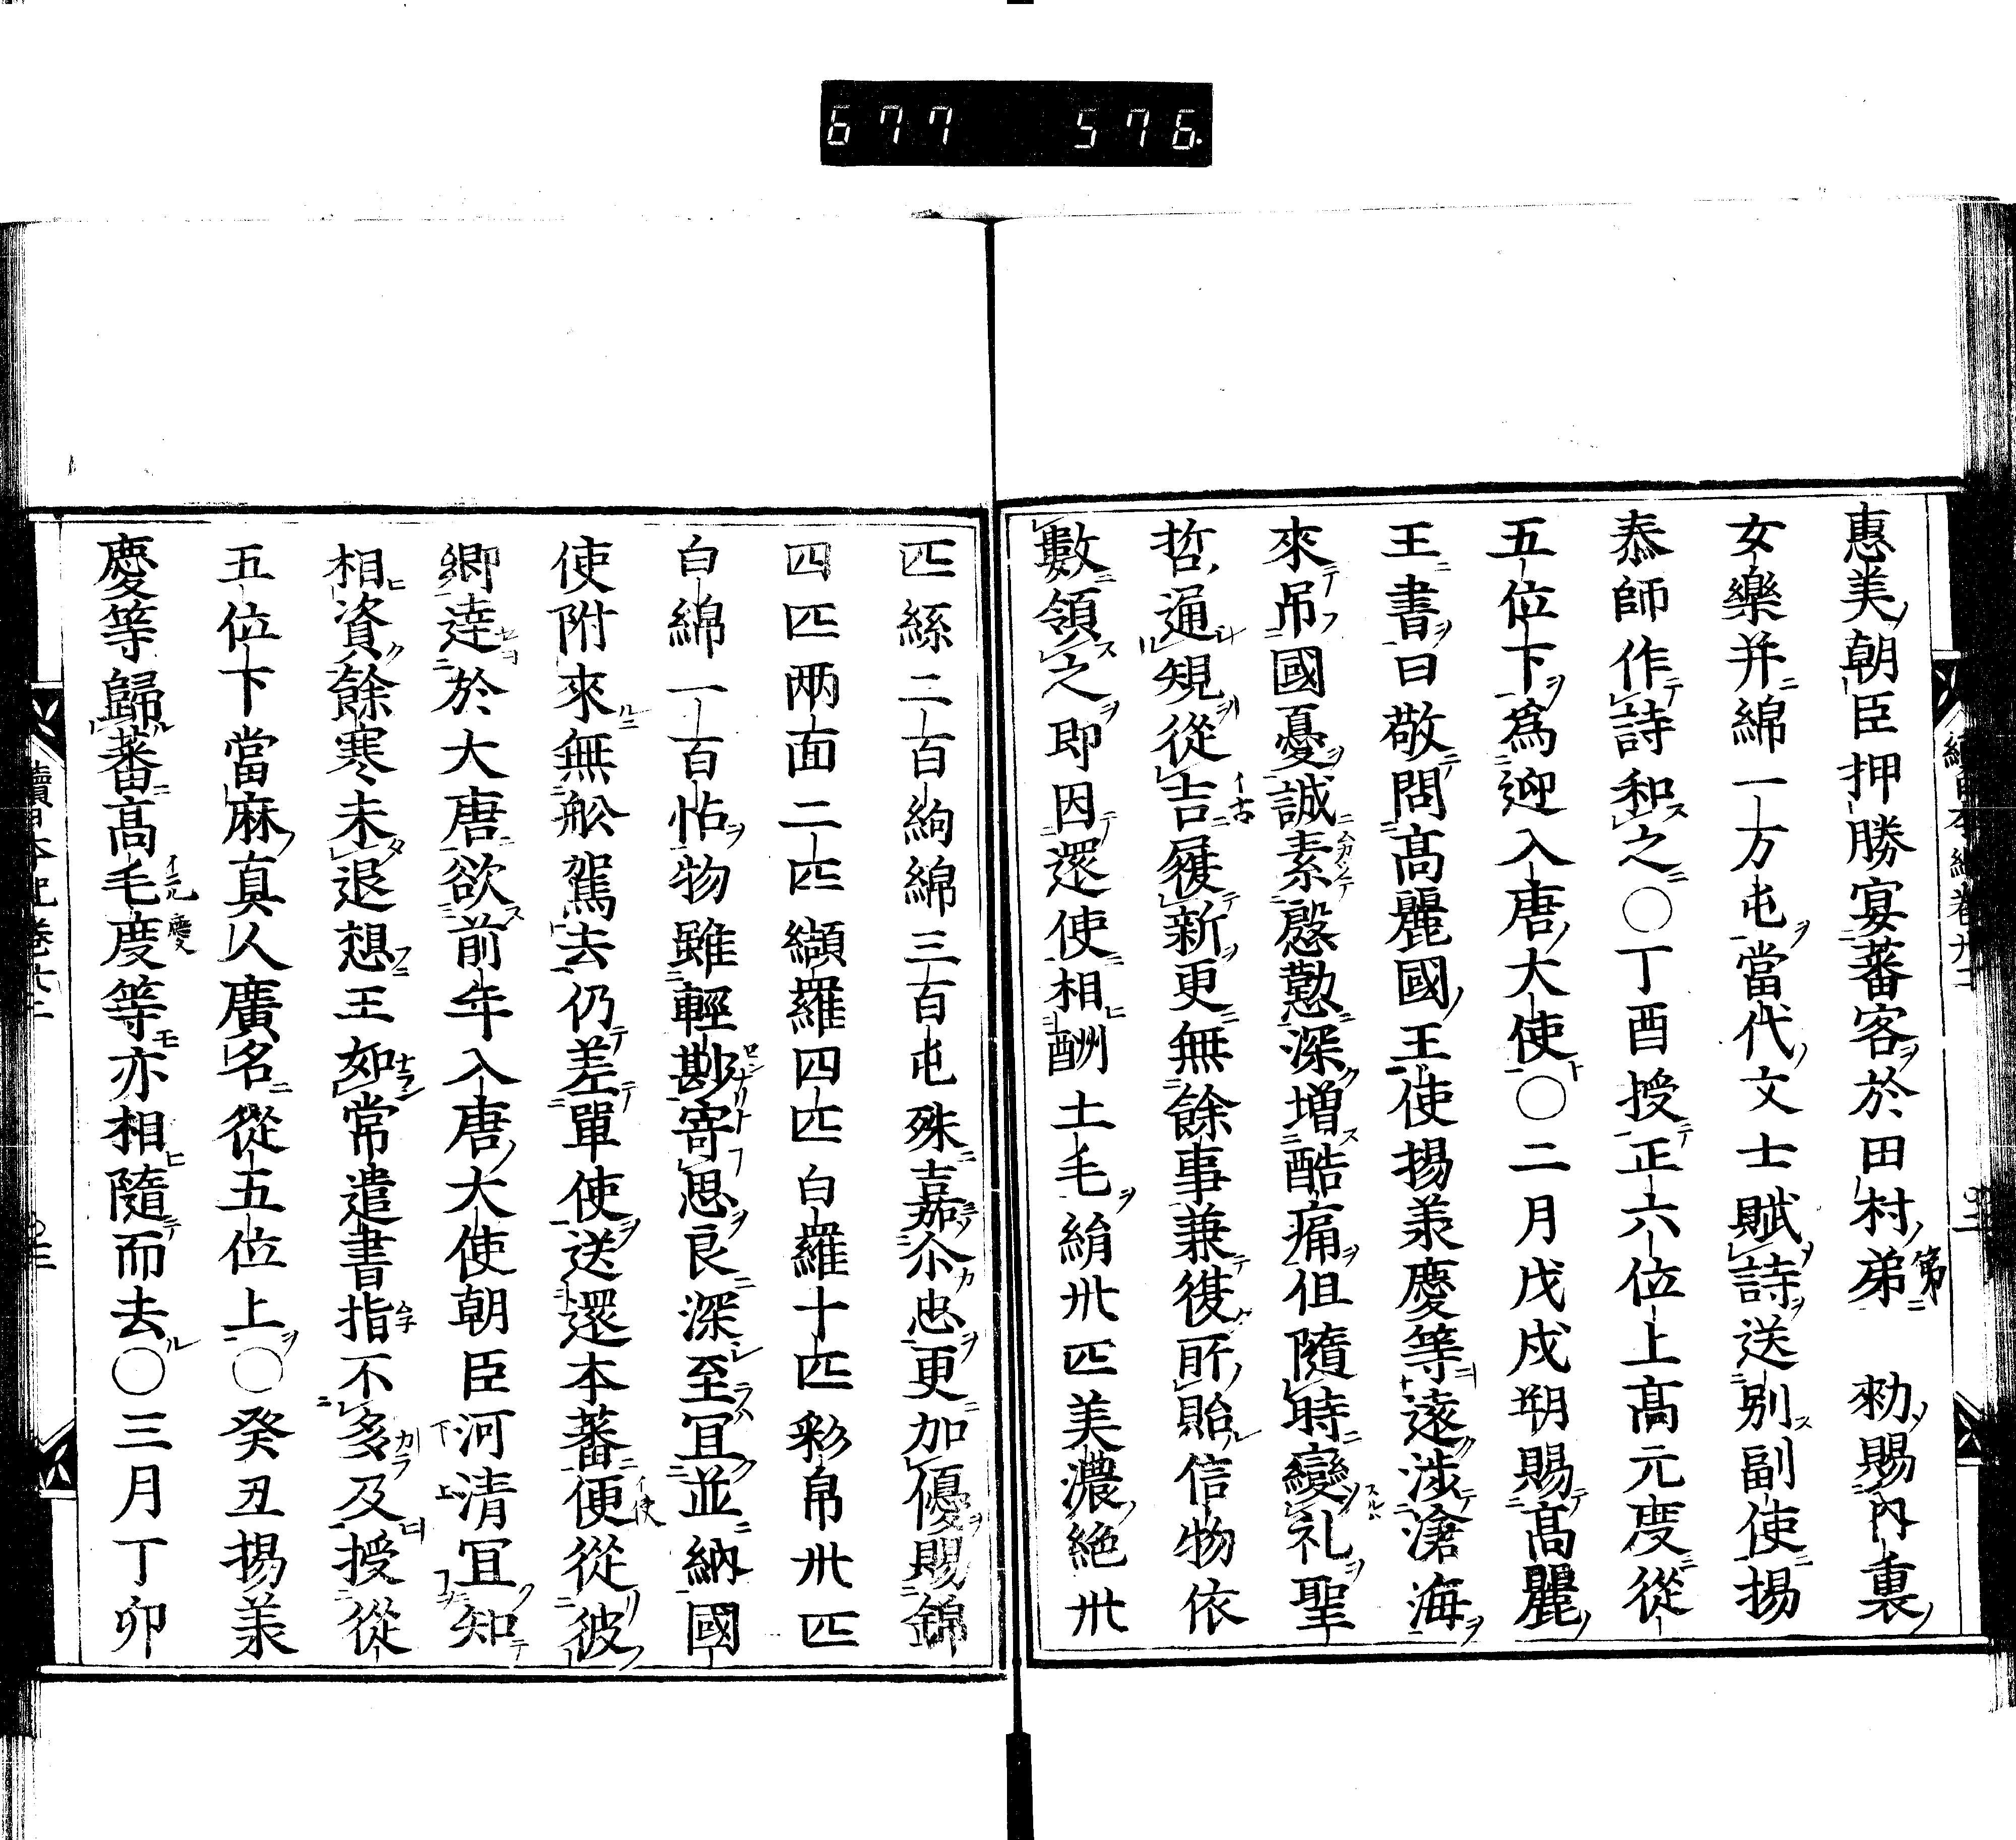 677 576.
惠美朝臣押勝宴蕃客於田村弟 勑賜內裏
女樂并綿一万屯當代文士賦詩送別副使揚
泰師作詩和之○丁酉授正六位上高元度從
五位下爲迎入唐大使○二月戊戌朔賜高麗
王書曰敬問高麗國王使揚羕慶等遠涉滄海
來吊國憂誠素慇懃深增酷痛但隨時變礼聖
哲通規從吉履新更無餘事兼復所貽信物依
數領之即因還使相酬土毛絹卅匹美濃絁卅
匹絲二百絇綿三百屯殊嘉尒忠更加優賜錦
四匹兩面二匹纈羅四匹白羅十匹彩帛卅匹
白綿一百帖物雖輕尠寄思良深至冝並納國
使附來無舩駕去仍差單使送還本蕃便從彼
鄉達於大唐欲前年入唐大使朝臣河清冝知
相資餘寒未退想王如常遣書指不多及授從
五位下當麻真人廣名從五位上○癸丑揚羕
慶等歸蕃高毛度等亦相隨而去○三月丁卯